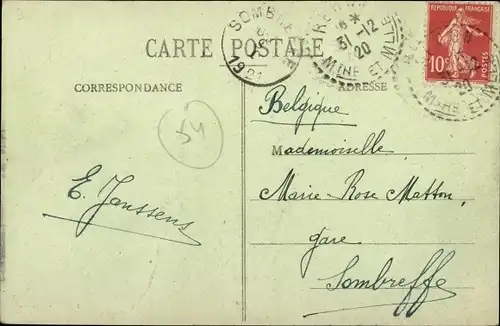 SOMBREFFE
1921
31-12
20
MTHE ET MLLE
RÉPUBLIQUE FRANÇAISE
10c
POSTES
CARTE POSTALE
CORRESPONDANCE
ADRESSE
54
Belgique
Mademoiselle
Marie-Rose Matton,
gare
Sombreffe
E. Janssens